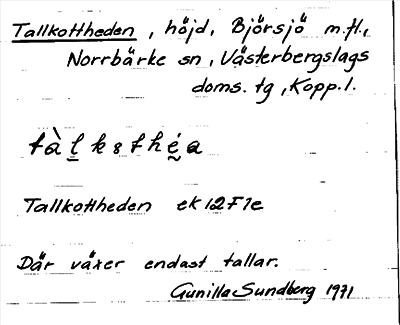 Tallkottheden, höjd, Björsjö m.fl.,
Norrbärke sn, Västerbergslags
doms. tg, Kopp. l.
tàl̲ksthḛ́a
Tallkottheden ek 12F1e
Där växer endast tallar.
Gunilla Sundberg 1971